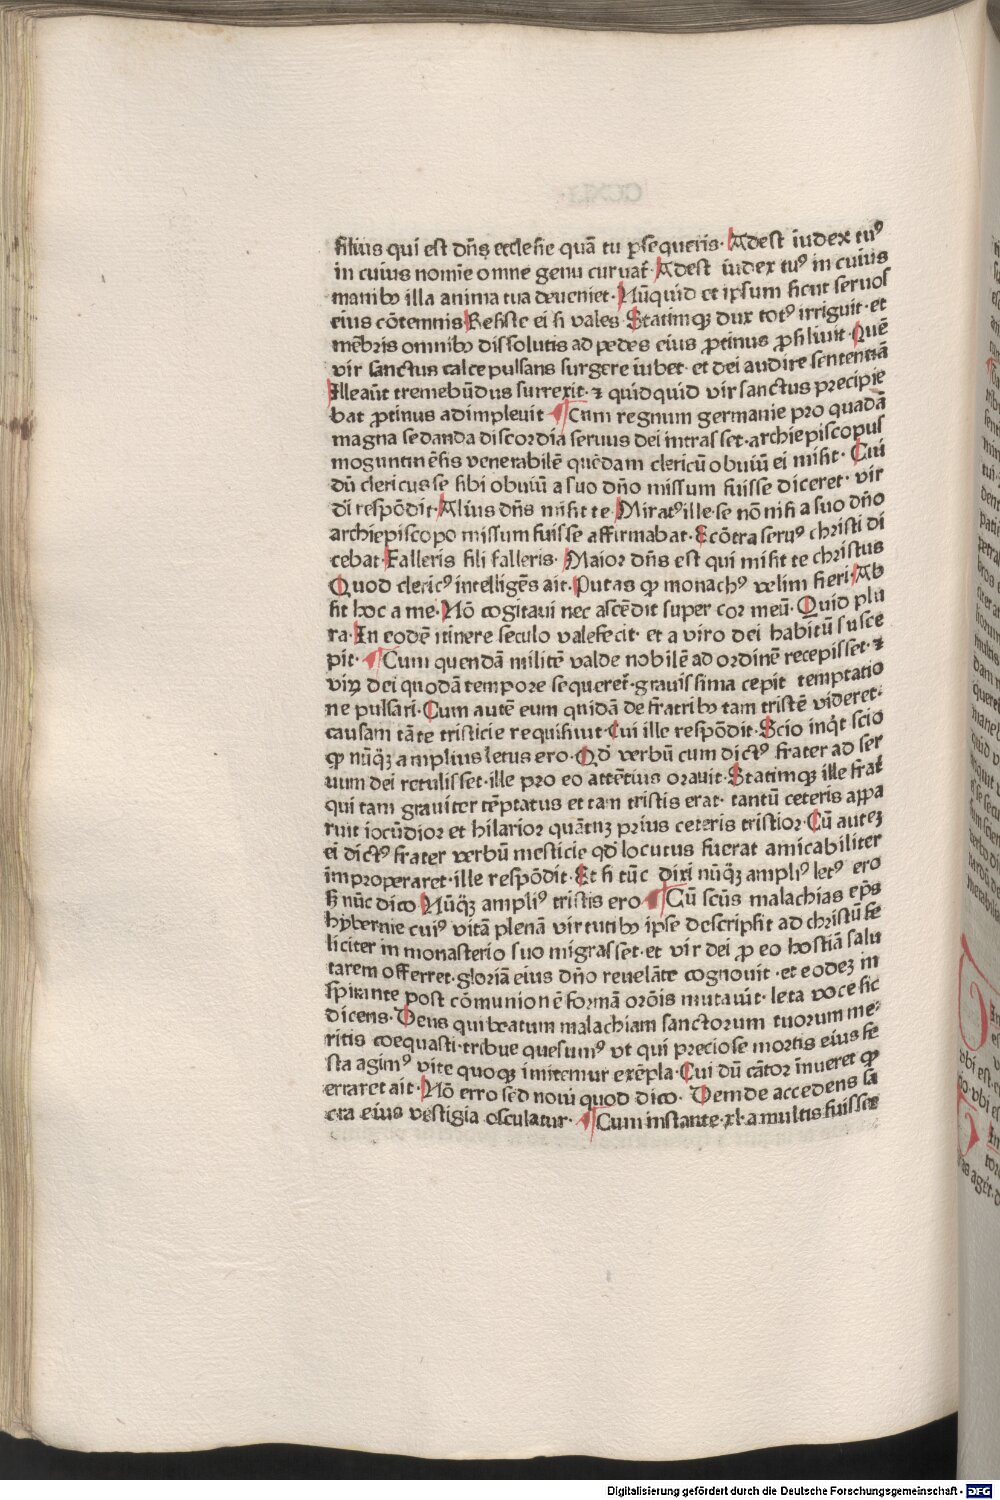 filius qui est dn̄s ecclesie quā tu ꝑsequeris· Adest iudex tuꝰ
in cuius nomīe omne genu curuat̄· Adest iudex tuꝰ in cuius
manibꝫ illa anima tua deueniet· Nūquid et ipsum sicut seruos
eius cōtemnis Resiste ei si vales· Statimqꝫ dux totꝰ irriguit· et
mēbris omnibꝫ dissolutis ad pedes eius ꝓtinus ꝓsiliuit· Quē
vir sanctus calce pulsans surgere iubet· et dei audire sententiā
Ille aūt tremebūdus surrexit· ⁊ quidquid vir sanctus precipie
bat ꝓtinus adimpleuit ¶ Cum regnum germanie pro quadā
magna sedanda discordia seruus dei intrasset· archiepiscopus
moguntinēsis venerabilē quēdam clericū obuiū ei misit· Cui
dū clericus se sibi obuiū a suo dn̄o missum fuisse diceret· vir
di respōdit· Alius dn̄s misit te· Miratꝰ ille se nō nisi a suo dn̄o
archiepiscopo missum fuisse affirmabat· Ecōtra seruꝰ christi di
cebat· Falleris fili falleris· Maior dn̄s est qui misit te christus
Quod clericꝰ intelligēs ait· Putas ꝙ monachꝰ velim fieri· Ab
sit hoc a me· Nō cogitaui nec ascēdit super cor meū· Quid plu
ra· In eodē itinere seculo valefecit· et a viro dei habitū susce
pit· ¶ Cum quendā militē valde nobilē ad ordinē recepisset· ⁊
viꝝ dei quodā tempore sequeret̄· grauissima cepit temptatio
ne pulsari· Cum autē eum quidā de fratribꝫ tam tristē videret·
causam tāte tristicie requisiuit· Cui ille respōdit· Scio inqͥt scio
ꝙ nūqꝫ amplius letus ero· Qd̄ verbū cum dictꝰ frater ad ser
uum dei retulisset· ille pro eo attētius orauit· Statimqꝫ ille frat̄
qui tam grauiter tēptatus et tam tristis erat· tantū ceteris appa
ruit iocūdior et hilarior quātuꝫ prius ceteris tristior· Cū auteꝫ
ei dictꝰ frater verbū mesticie qd̄ locutus fuerat amicabiliter
improperaret· ille respōdit· Et si tūc dixi nūqꝫ ampliꝰ letꝰ ero
sꝫ nūc dico Nūqꝫ ampliꝰ tristis ero ¶ Cū scūs malachias ep̄s
hybernie cuiꝰ vitā plenā virtutibꝫ ipse descripsit ad christū fe
liciter in monasterio suo migrasset· et vir dei ꝓ eo hostiā salu
tarem offerret· gloriā eius dn̄o reuelāte cognouit· et eodeꝫ in
spirante post cōmunionē formā orōis mutauit· leta voce sic
dicens· Deus qui beatum malachiam sanctorum tuorum me·
ritis coequasti· tribue quesumꝰ vt qui preciose mortis eius fe
sta agimꝰ vite quoqꝫ imitemur exēpla· Cui dū cātor īnueret ꝙ
erraret ait· Nō erro sed noui quod dico· Deinde accedens sa
cra eius vestigia osculatur· ¶ Cum instante· xl· a multis fuisset